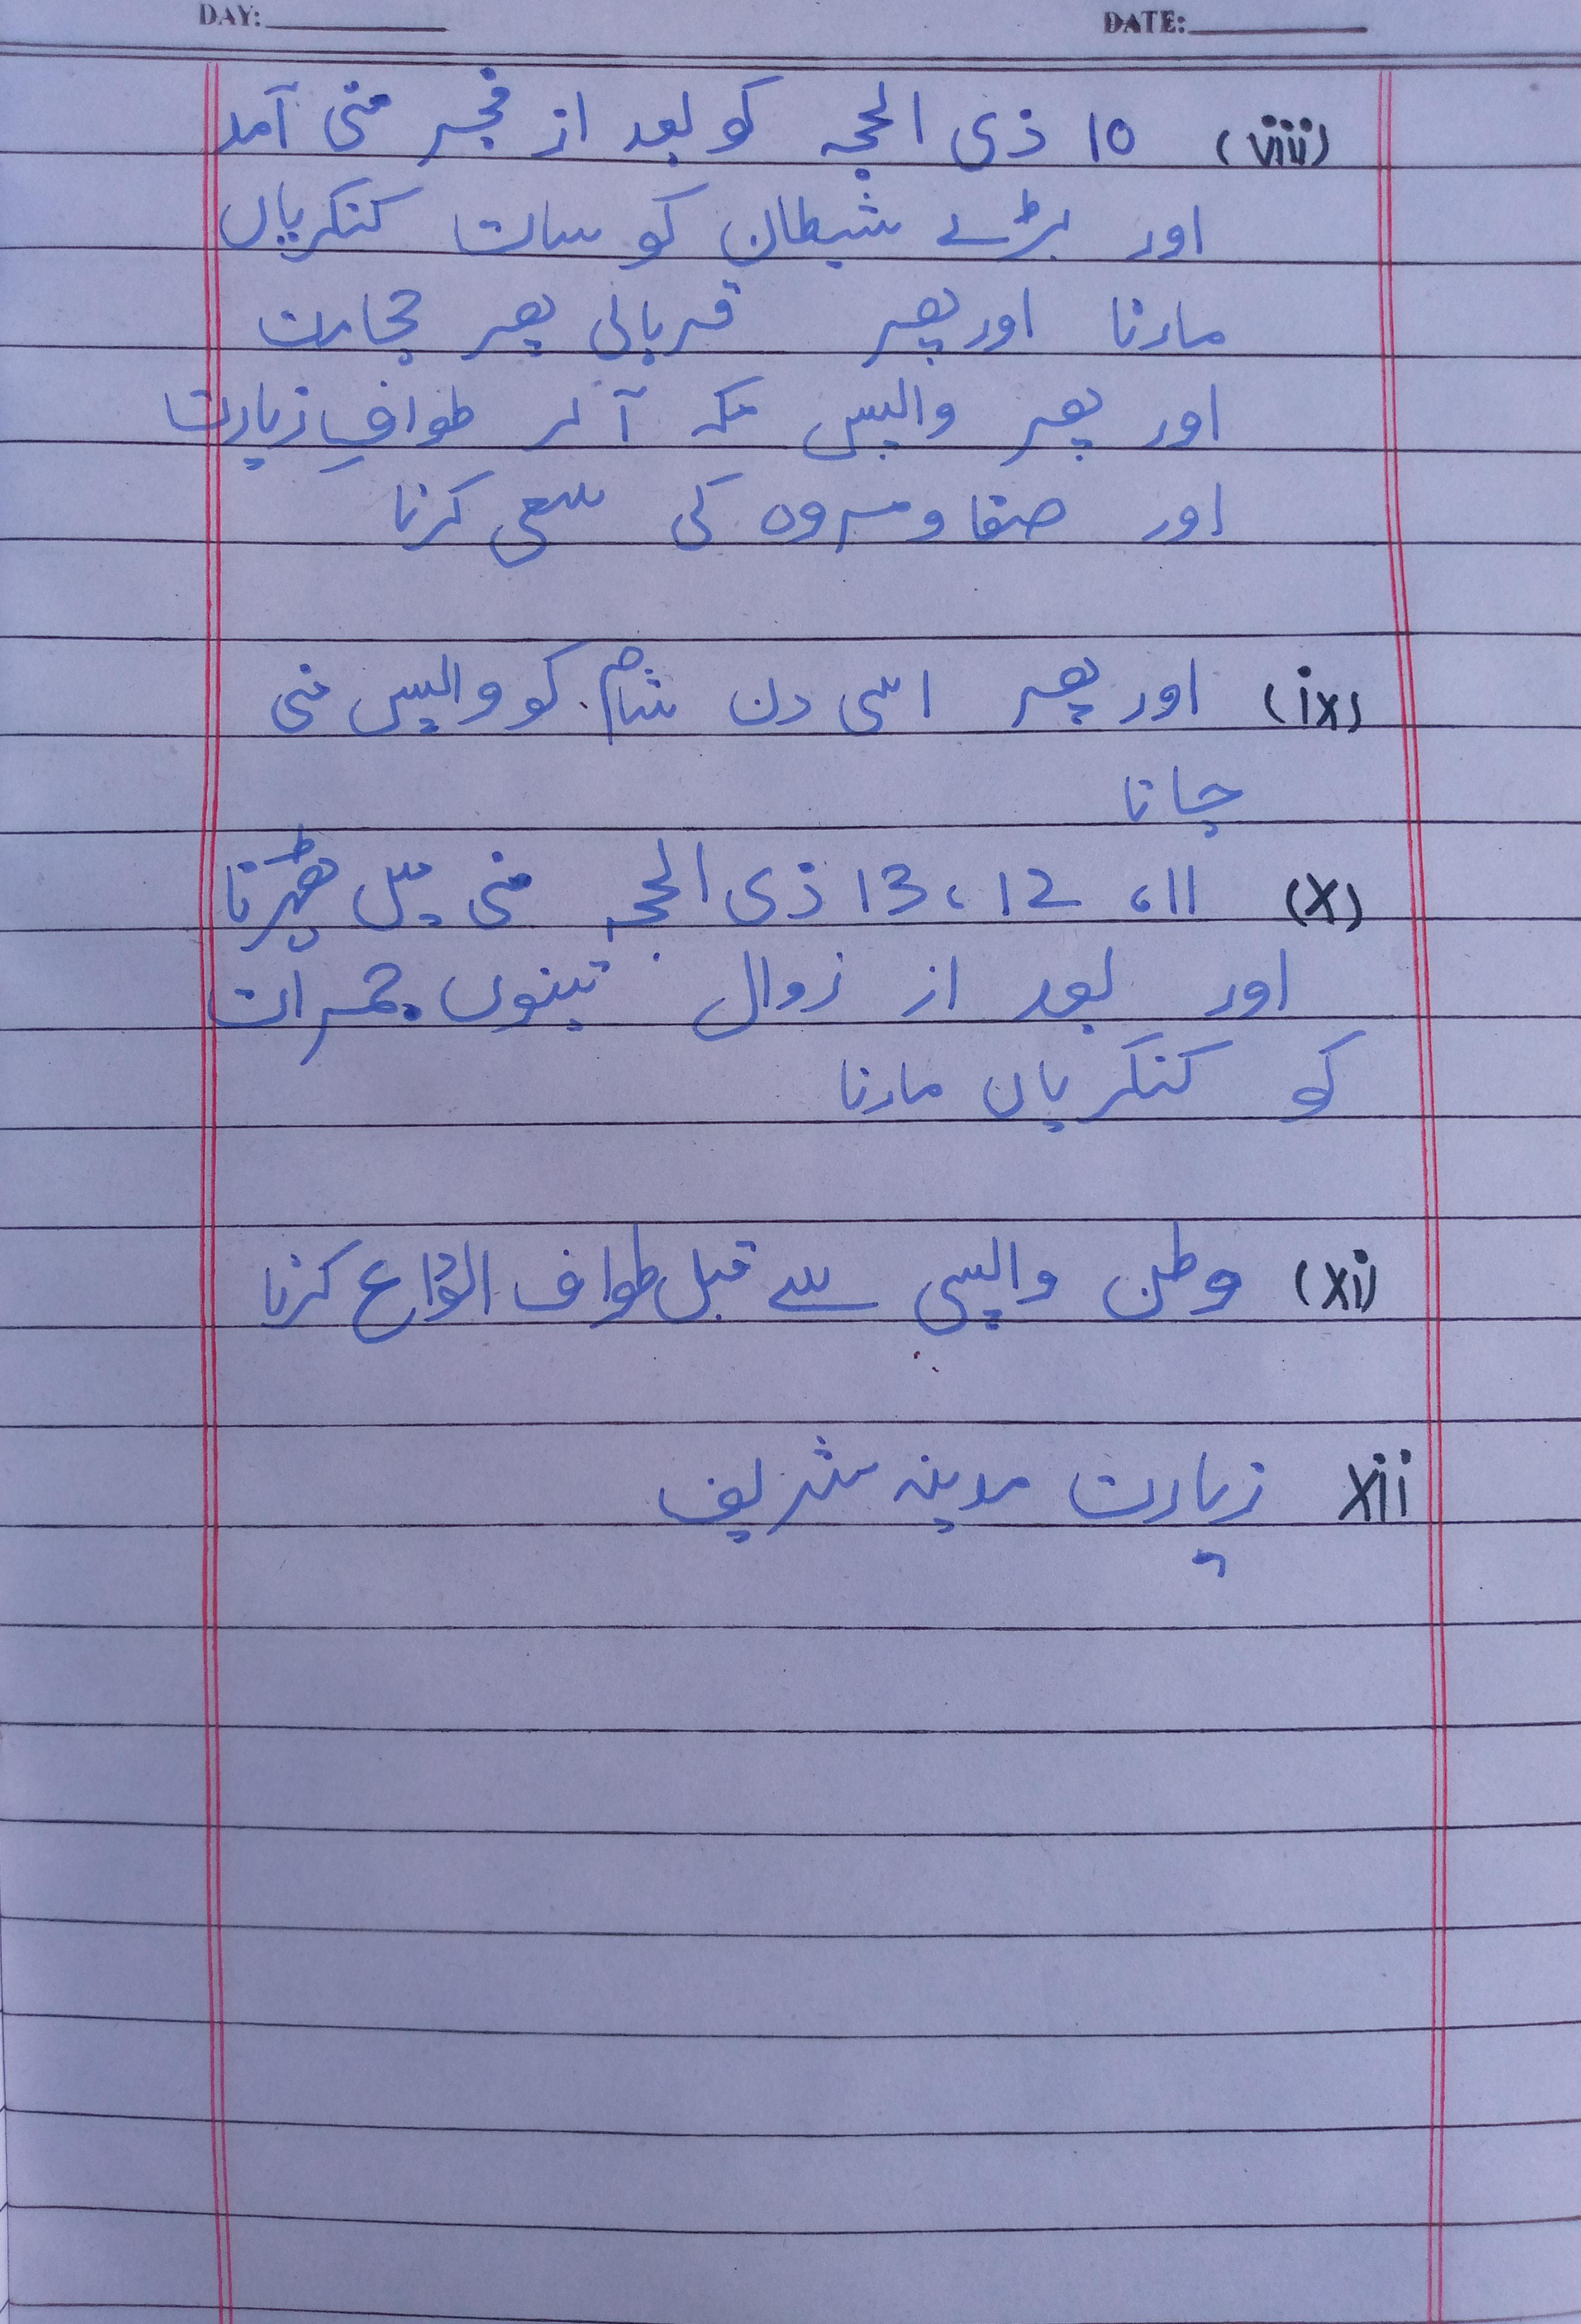 DAY: DATE:
(viii) 10 ذی الحجہ کو بعد از فجر منی آمد
اور بڑے شیطان کو سات کنکریاں
مارنا اور پھر قربانی پھر حجامت
اور پھر واپس مکہ آ کر طوافِ زیارت
اور صفا و مروہ کی سعی کرنا
(ix) اور پھر اسی دن شام کو واپس منی
جانا
(x) 11، 12، 13 ذی الحجہ منی میں ٹھہرنا
اور بعد از زوال تینوں جمرات
کو کنکریاں مارنا
(xi) وطن واپسی سے قبل طواف الوداع کرنا
xii زیارت مدینہ شریف